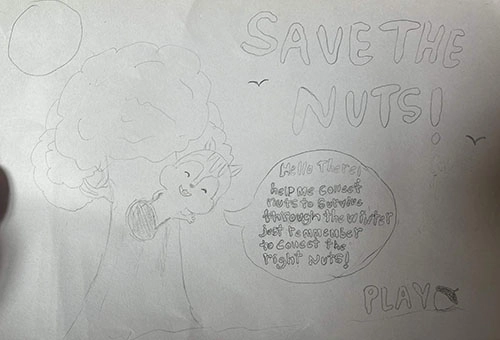 SAVE THE
NUTS!
Hello There!
help me collect
nuts to survive
through the winter
just remember
to collect the
right nuts!
PLAY